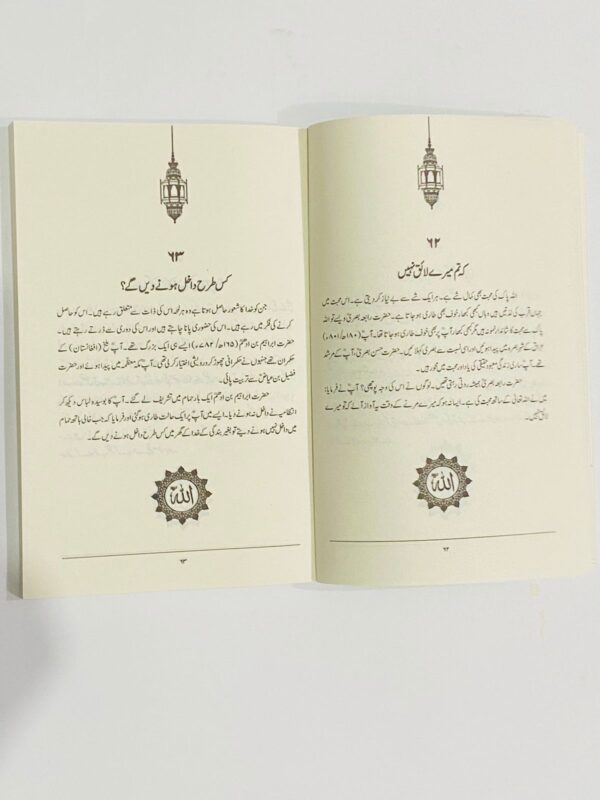 ۶۲
کہ تم میرے لائق نہیں
اللہ پاک کی محبت بھی کمال شے ہے۔ ہر ایک شے سے بے نیاز کر دیتی ہے۔ اس محبت میں
جہاں قرب کی لذتیں ہیں وہاں کبھی کبھار خوف بھی طاری ہو جاتا ہے۔ حضرت رابعہ بصریؒ ویسے تو اللہ
پاک سے محبت کا شاندار نمونہ ہیں مگر کبھی کبھار آپؒ پر بھی خوف طاری ہو جاتا تھا۔ آپؒ (۱۸۰ھ/۸۰۱ء)
عراق کے شہر بصرہ میں پیدا ہوئیں اور اسی نسبت سے بصری کہلائیں۔ حضرت حسن بصریؒ، آپؒ کے مرشد
تھے۔ آپؒ ساری زندگی معبودِ حقیقی کی یاد اور محبت میں محو رہیں۔
حضرت رابعہ بصریؒ ہمیشہ روتی رہتی تھیں۔ لوگوں نے اس کی وجہ پوچھی؟ آپؒ نے فرمایا:
میں نے اللہ تعالیٰ کے ساتھ محبت کی ہے۔ ایسا نہ ہو کہ میرے مرنے کے وقت یہ آواز آئے کہ تو میرے
لائق نہیں۔
اللہ
۶۲
۶۳
کس طرح داخل ہونے دیں گے؟
جن کو خدا کا شعور حاصل ہوتا ہے وہ ہر لمحہ اس کی ذات سے متعلق رہتے ہیں۔ اس کو حاصل
کرنے کی فکر میں رہتے ہیں۔ اس کی حضوری پانا چاہتے ہیں اور اس کی دوری سے ڈرتے رہتے ہیں۔
حضرت ابراہیم بن ادھمؒ (۱۶۵ھ/۷۸۲ء) ایسے ہی ایک بزرگ تھے۔ آپؒ بلخ (افغانستان) کے
حکمران تھے جنہوں نے حکمرانی چھوڑ کر درویشی اختیار کر لی تھی۔ آپؒ مکہ معظمہ میں پیدا ہوئے اور حضرت
فضیل بن عیاضؒ سے تربیت پائی۔
حضرت ابراہیم بن ادھمؒ ایک بار حمام میں تشریف لے گئے۔ آپؒ کا بوسیدہ لباس دیکھ کر
انتظامیہ نے داخل نہ ہونے دیا۔ ایسے میں آپؒ پر ایک حالت طاری ہو گئی اور فرمایا کہ جب خالی ہاتھ حمام
میں داخل نہیں ہونے دیتے تو بغیر بندگی کے خدا کے گھر میں کس طرح داخل ہونے دیں گے۔
اللہ
۶۳